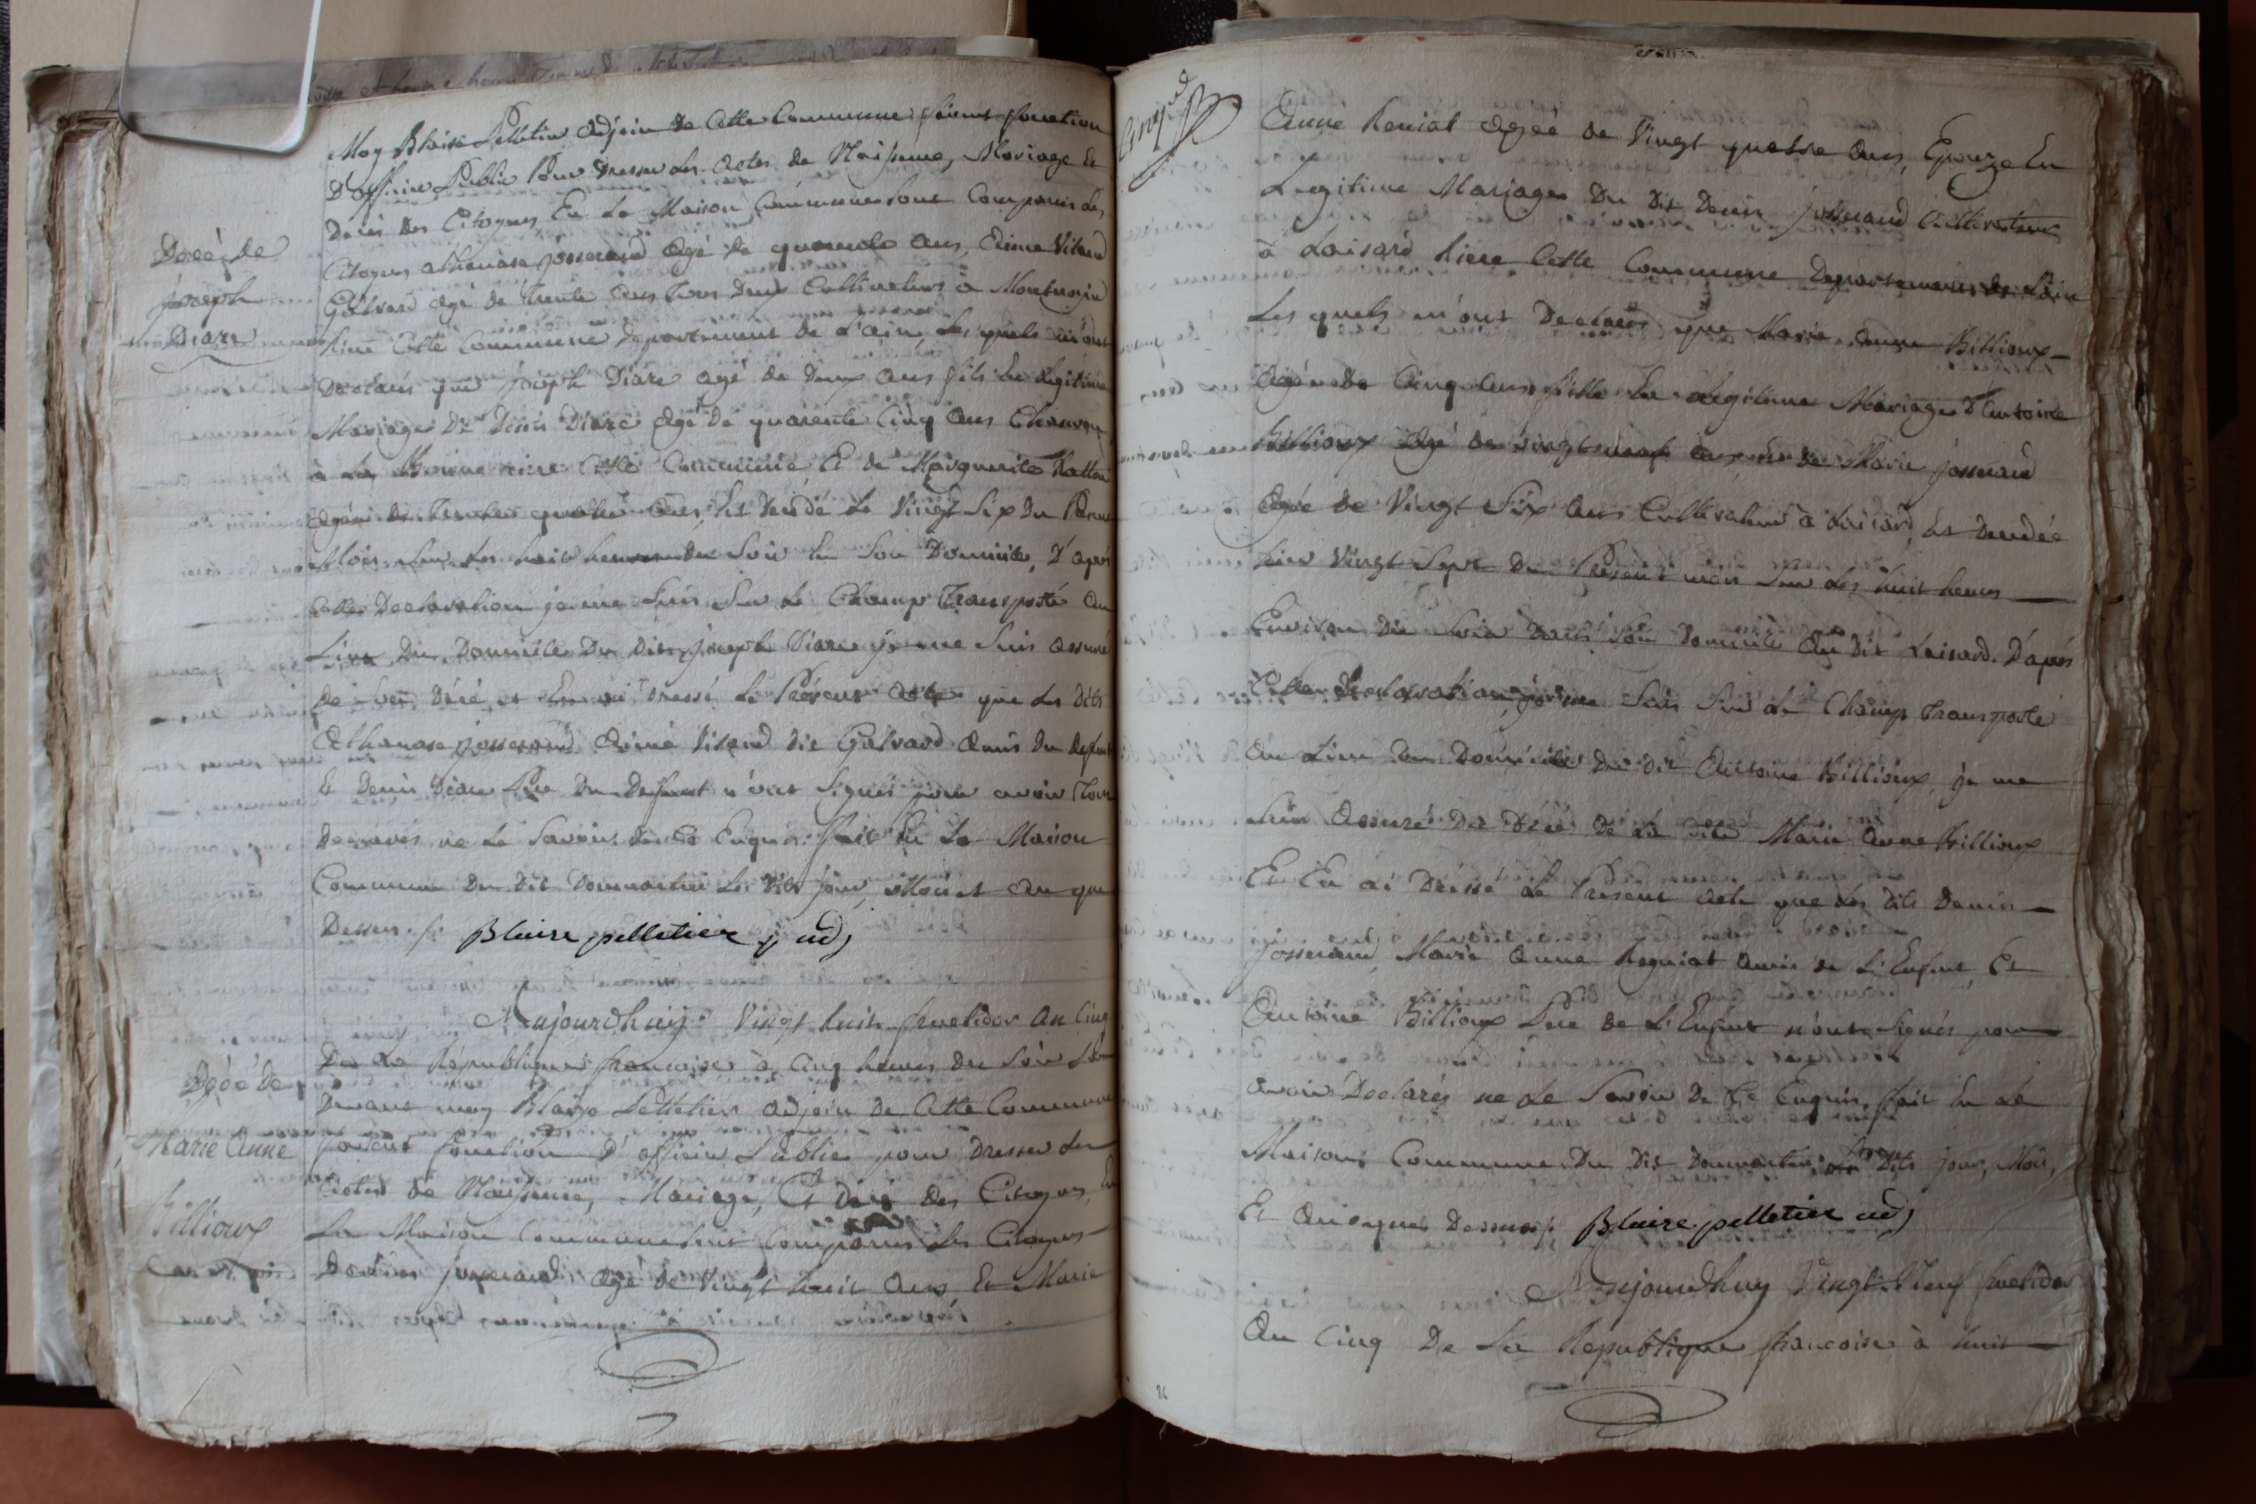 Moy Blaise Pelletier adjoin de Cette Commune faisant fonction
D'officier Public Pour Dresser Les actes de Naissence, Mariage Et
Décès des Citoyens, En La Maison Commune sont Comparus Les
Citoyens athanase josserand agé de quarante ans, Aimé Vitaud
Galvard agé de Trente ans Tous deux Cultivateurs à
Riere Cette Commune Departement de L'ain, Les quels m'ont
Déclarés que joseph Diare agé de deux ans fils En Legitime
Mariage De Denis Diare agé De quarante Cinq ans
à La riere Cette Commune Et de Marguerite
agée de Trente quatre ans, Est decédé Le Vingt Six Du Present
Mois Sur Les huit heures du Soir En Son Domicile, D'après
Cette Declaration je me Suis Sur Le Champ Transporté au
Lieu Du Domicile Du dit joseph Diare je me Suis assuré
de Son Décé, et En ai Dressé Le Présent acte que Les dits
Athanase josserand Aimé Vitaud dit Galvard amis Du Defunt
Et Denis Diare Pere Du Defunt n'ont Signés pour avoir Tous
Declarés ne Le Savoir de Ce Enquis. fait En La Maison
Commune Du Dit Dommartin Les Dits jour, Mois et an que
Dessus ./. Blaise pelletier adj
Décé, de
joseph
Diare
Aujourdhuy Vingt huit fructidor an Cinq
De La République francoise à Cinq heures du Soir Par
Devant moy Blaise Pelletier adjoin de Cette Commune
faisant fonction D'officier Public pour Dresser Les
Actes de Naissence, Mariage, Et Décé des Citoyens, En
La Maison Commune Sont Comparus Les Citoyens
Denis josserand agé de Vingt huit ans Et Marie
Décé De
Marie Anne
Billioux
Anne Reniat agée de Vingt quatre ans, Epouze En
Legitime Mariage Du Dit Denis josserand Cultivateurs
à Loisard Riere Cette Commune Departement de L'ain
Les quels m'ont Declarés que Marie anne Billioux
agée de Cinq ans fille En Legitime Mariage d'Antoine
Billioux agé de Vingt neuf ans Et de Marie josserand
agée de Vingt Six ans Cultivateurs à Loisard, Est Decedée
hier Vingt Sept Du Present mois Sur Les huit heures
Environ Du Soir Dans Son Domicile Au Dit Loisard. D'après
Cette Declaration, je me Suis Sur Le Champ Transporté
au Lieu Du Domicile Du dit Antoine Billioux, je me
Suis Assuré Du Décé De La Dite Marie Anne Billioux
Et En ai Dréssé Le Présent acte que Les Dits Denis
josserand, Marie Anne Regniat amis de L'Enfent, Et
Antoine Billioux Pere De L'Enfent n'ont Signés pour
avoir Declarés ne Le Savoir De Ce Enquis, fait En La
Maison Commune Du Dit Dommartin Les Dits jour, Mois,
Et An que Dessus ./. Blaise pelletier adj
Aujourdhuy Vingt Neuf fructidor
An Cinq De La Republique francoise à huit
26